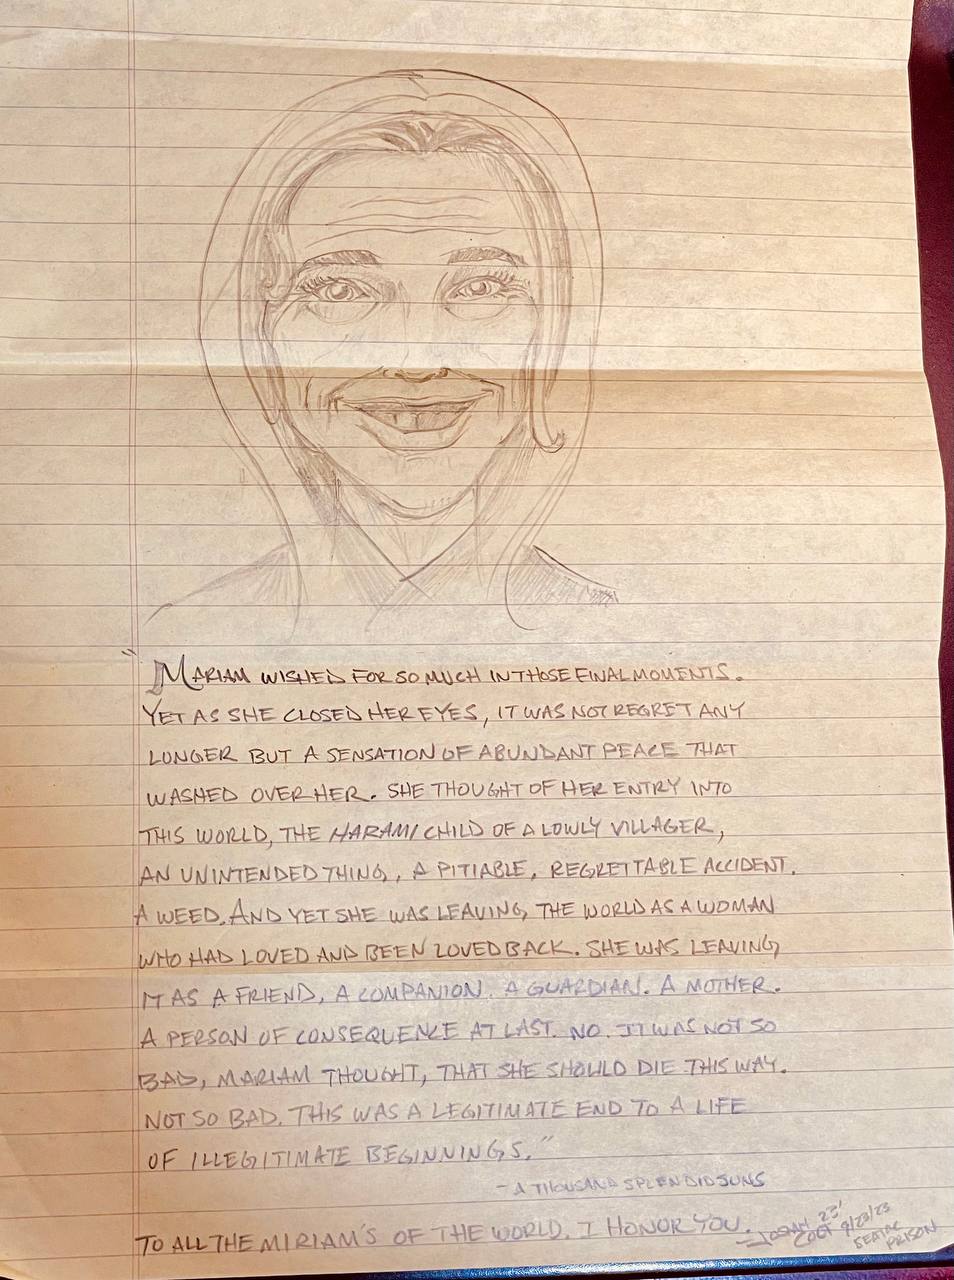 "MARIAM WISHED FOR SO MUCH IN THOSE FINAL MOMENTS.
YET AS SHE CLOSED HER EYES, IT WAS NOT REGRET ANY
LONGER BUT A SENSATION OF ABUNDANT PEACE THAT
WASHED OVER HER. SHE THOUGHT OF HER ENTRY INTO
THIS WORLD, THE HARAMI CHILD OF A LOWLY VILLAGER,
AN UNINTENDED THING, A PITIABLE, REGRETTABLE ACCIDENT.
A WEED. AND YET SHE WAS LEAVING THE WORLD AS A WOMAN
WHO HAD LOVED AND BEEN LOVED BACK. SHE WAS LEAVING
IT AS A FRIEND, A COMPANION. A GUARDIAN. A MOTHER.
A PERSON OF CONSEQUENCE AT LAST. NO. IT WAS NOT SO
BAD, MARIAM THOUGHT, THAT SHE SHOULD DIE THIS WAY.
NOT SO BAD. THIS WAS A LEGITIMATE END TO A LIFE
OF ILLEGITIMATE BEGINNINGS."
- A THOUSAND SPLENDID SUNS
TO ALL THE MIRIAM'S OF THE WORLD. I HONOR YOU.
23'
COLT 9/23/23
SEATAC
PRISON